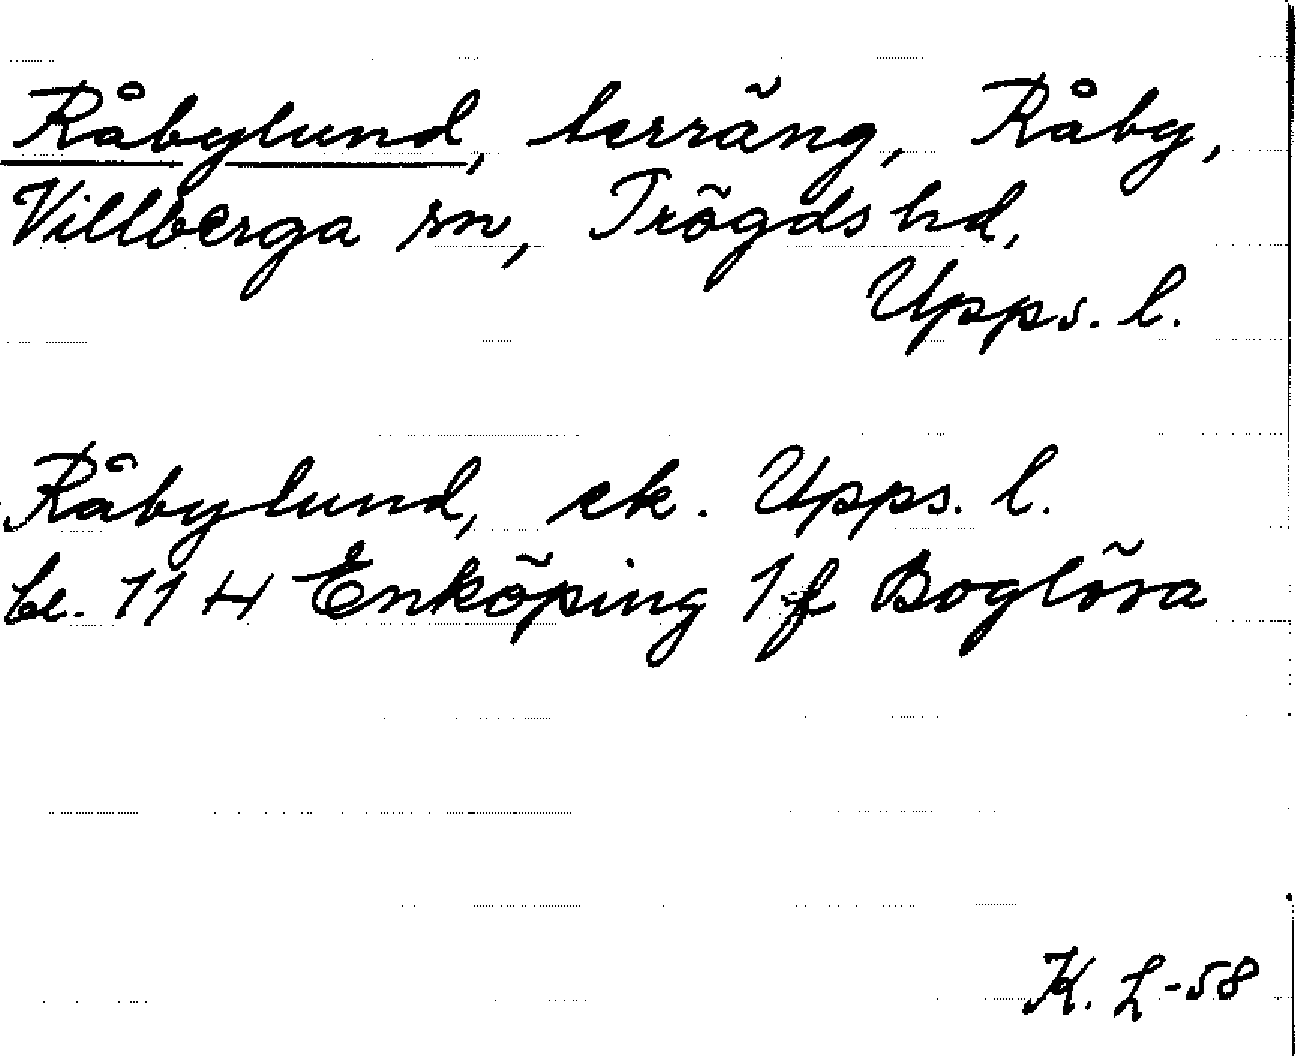 Råbylund, terräng, Råby,
Villberga sn, Trögds hd,
Upps. l.
Råbylund, ek. Upps. l.
bl. 11 H Enköping 1f Boglösa
K. L-58